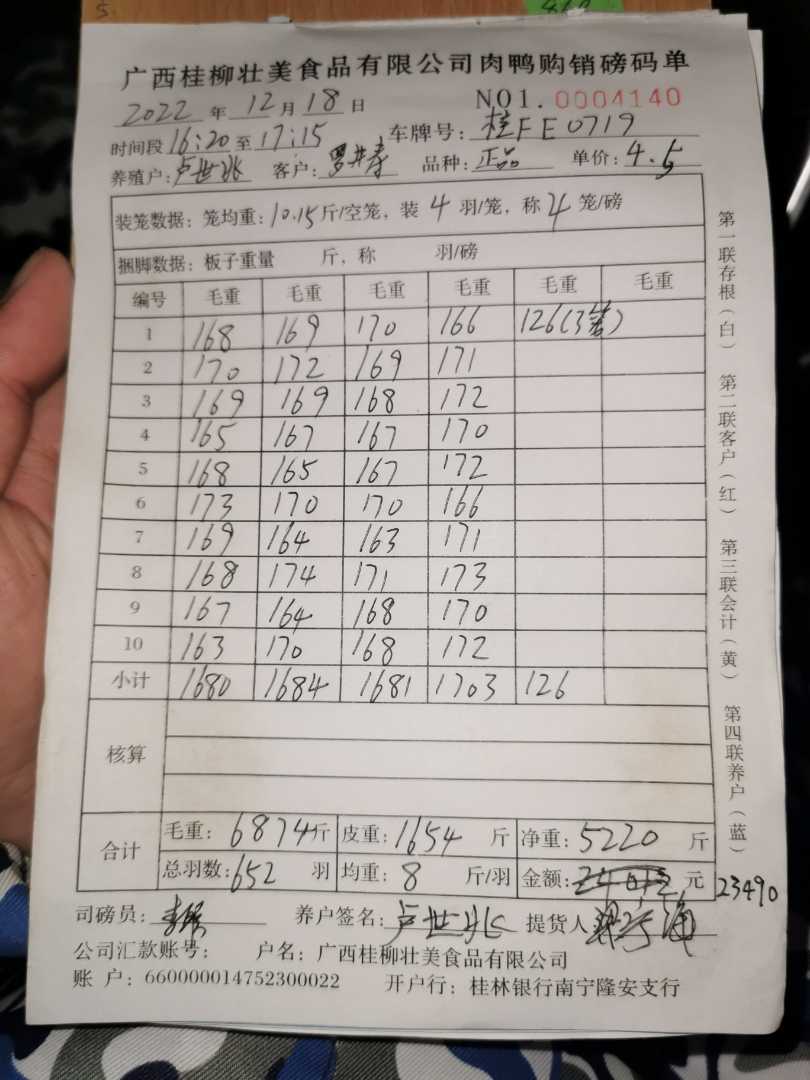 广西桂柳壮美食品有限公司肉鸭购销磅码单
2022年12月18日 NO1.0004140
时间段16:20至17:15 车牌号:桂FE0719
养殖户:卢世兆 客户: 品种:正品 单价:4.5
装笼数据:笼均重:10.15斤/空笼,装4羽/笼,称4笼/磅
捆脚数据:板子重量 斤,称 羽/磅
编号 毛重 毛重 毛重 毛重 毛重 毛重
1 168 169 170 166 126(3笼)
2 170 172 169 171
3 169 169 168 172
4 165 167 167 170
5 168 165 167 172
6 173 170 170 166
7 169 164 163 171
8 168 174 171 173
9 167 164 168 170
10 163 170 168 172
小计 1680 1684 1681 1703 126
核算
合计 毛重:6874斤 皮重:1654斤 净重:5220斤
总羽数:652羽 均重:8斤/羽 金额: 元 23490
司磅员: 养户签名:卢世兆 提货人
公司汇款账号: 户名:广西桂柳壮美食品有限公司
账 户:660000014752300022 开户行:桂林银行南宁隆安支行
第一联存根(白) 第二联客户(红) 第三联会计(黄) 第四联养户(蓝)